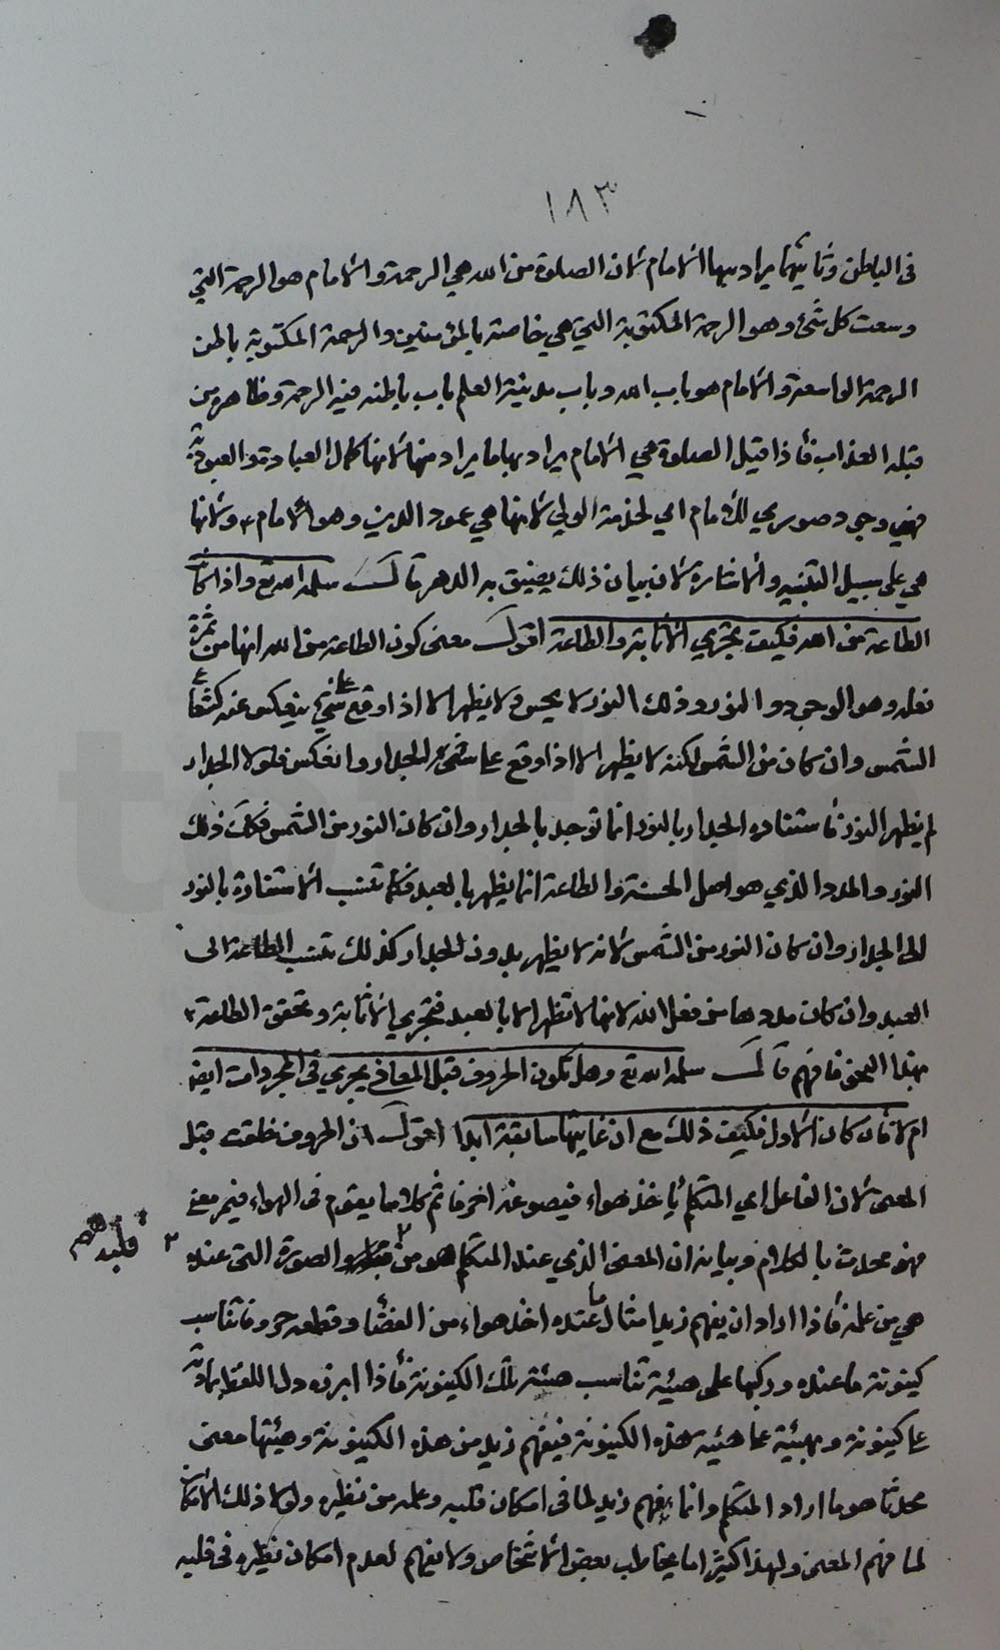 ١٨٣
فى الباطن وثانيهما يراد بها الامام لان الصلوة من الله هي الرحمة والامام هو الرحمة التي
وسعت كل شئ وهو الرحمة المكتوبة التي هي خاصة بالمؤمنين والرحمة المكتوبة باطن
الرحمة الواسعة والامام هو باب الله وباب مدينة العلم باب باطنه فيه الرحمة وظاهره من
قبله العذاب فاذا قيل الصلوة هي الامام يراد بها ما يراد منها لانها كمال العبادة والعبودية
فهي وجود صوري للامام اي لخدمة الولي لانها هي عمود الدين وهو الامام ع ولانها
هي على سبيل التنبيه والاشارة لان بيان ذلك يضيق به الدهر قال سلمه الله تع واذا كان
الطاعة من الله فكيف يجزي الاثابة والطاعة اقول معنى كون الطاعة من الله انها من ثمرة
فعله وهو الوجود والنور وذلك النور لا يحس ولا يظهر الا اذا وقع على شئ ينعكس عنه كشعاع
الشمس وان كان من الشمس لكنه لا يظهر الا اذا وقع على شئ كالجدار وانعكس فلولا الجدار
لم يظهر النور فاستنارة الجدار بالنور انما توجد بالجدار وان كان النور من الشمس فكك ذلك
النور والمدد الذي هو اصل الحسنة والطاعة انما يظهر بالعبد فكما تنسب الاستنارة بالنور
الى الجدار وان كان النور من الشمس لانه لا يظهر بدون الجدار كذلك تنسب الطاعة الى
العبد وان كان مددها من فعل الله لانها لا تظهر الا بالعبد فتجزي الاثابة وتحقق الطاعة
بهذا النحو فافهم قال سلمه الله تع وهل تكون الحروف قبل المعاني يجري فى المجردات ايضا
ام لا فان كان الاول فكيف ذلك مع ان غايتها سابقة ابدا اقول ان الحروف خلقت قبل
المعنى لان الفاعل اي المتكلم ياخذ هواء فيصوغه احرفا ثم كلاما يقوم فى الهواء فيه معنى
فهو محدث بالكلام وبيانه ان المعنى الذي عند المتكلم هو من قلبه والصورة التى عنده
قلبه
هي من علمه فاذا اراد ان يفهم زيدا مثال ما عنده اخذ هواء من الفضاء وقطعه حروفا تناسب
كينونة ما عنده وركبها على هيئة تناسب هيئة تلك الكينونة فاذا ابرزه دل اللفظ بمادته
على كينونة وبهيئته على هيئة هذه الكينونة فيفهم زيد من هذه الكينونة وهيئتها معنى
محدثا هو ما اراد المتكلم وانما يفهم زيد لما فى امكان قلبه وعلمه من نظيره ولولا ذلك الامكان
لما فهم المعنى ولهذا كثيرا ما يخاطب بعض الاشخاص ولا يفهم لعدم امكان نظيره فى قلبه